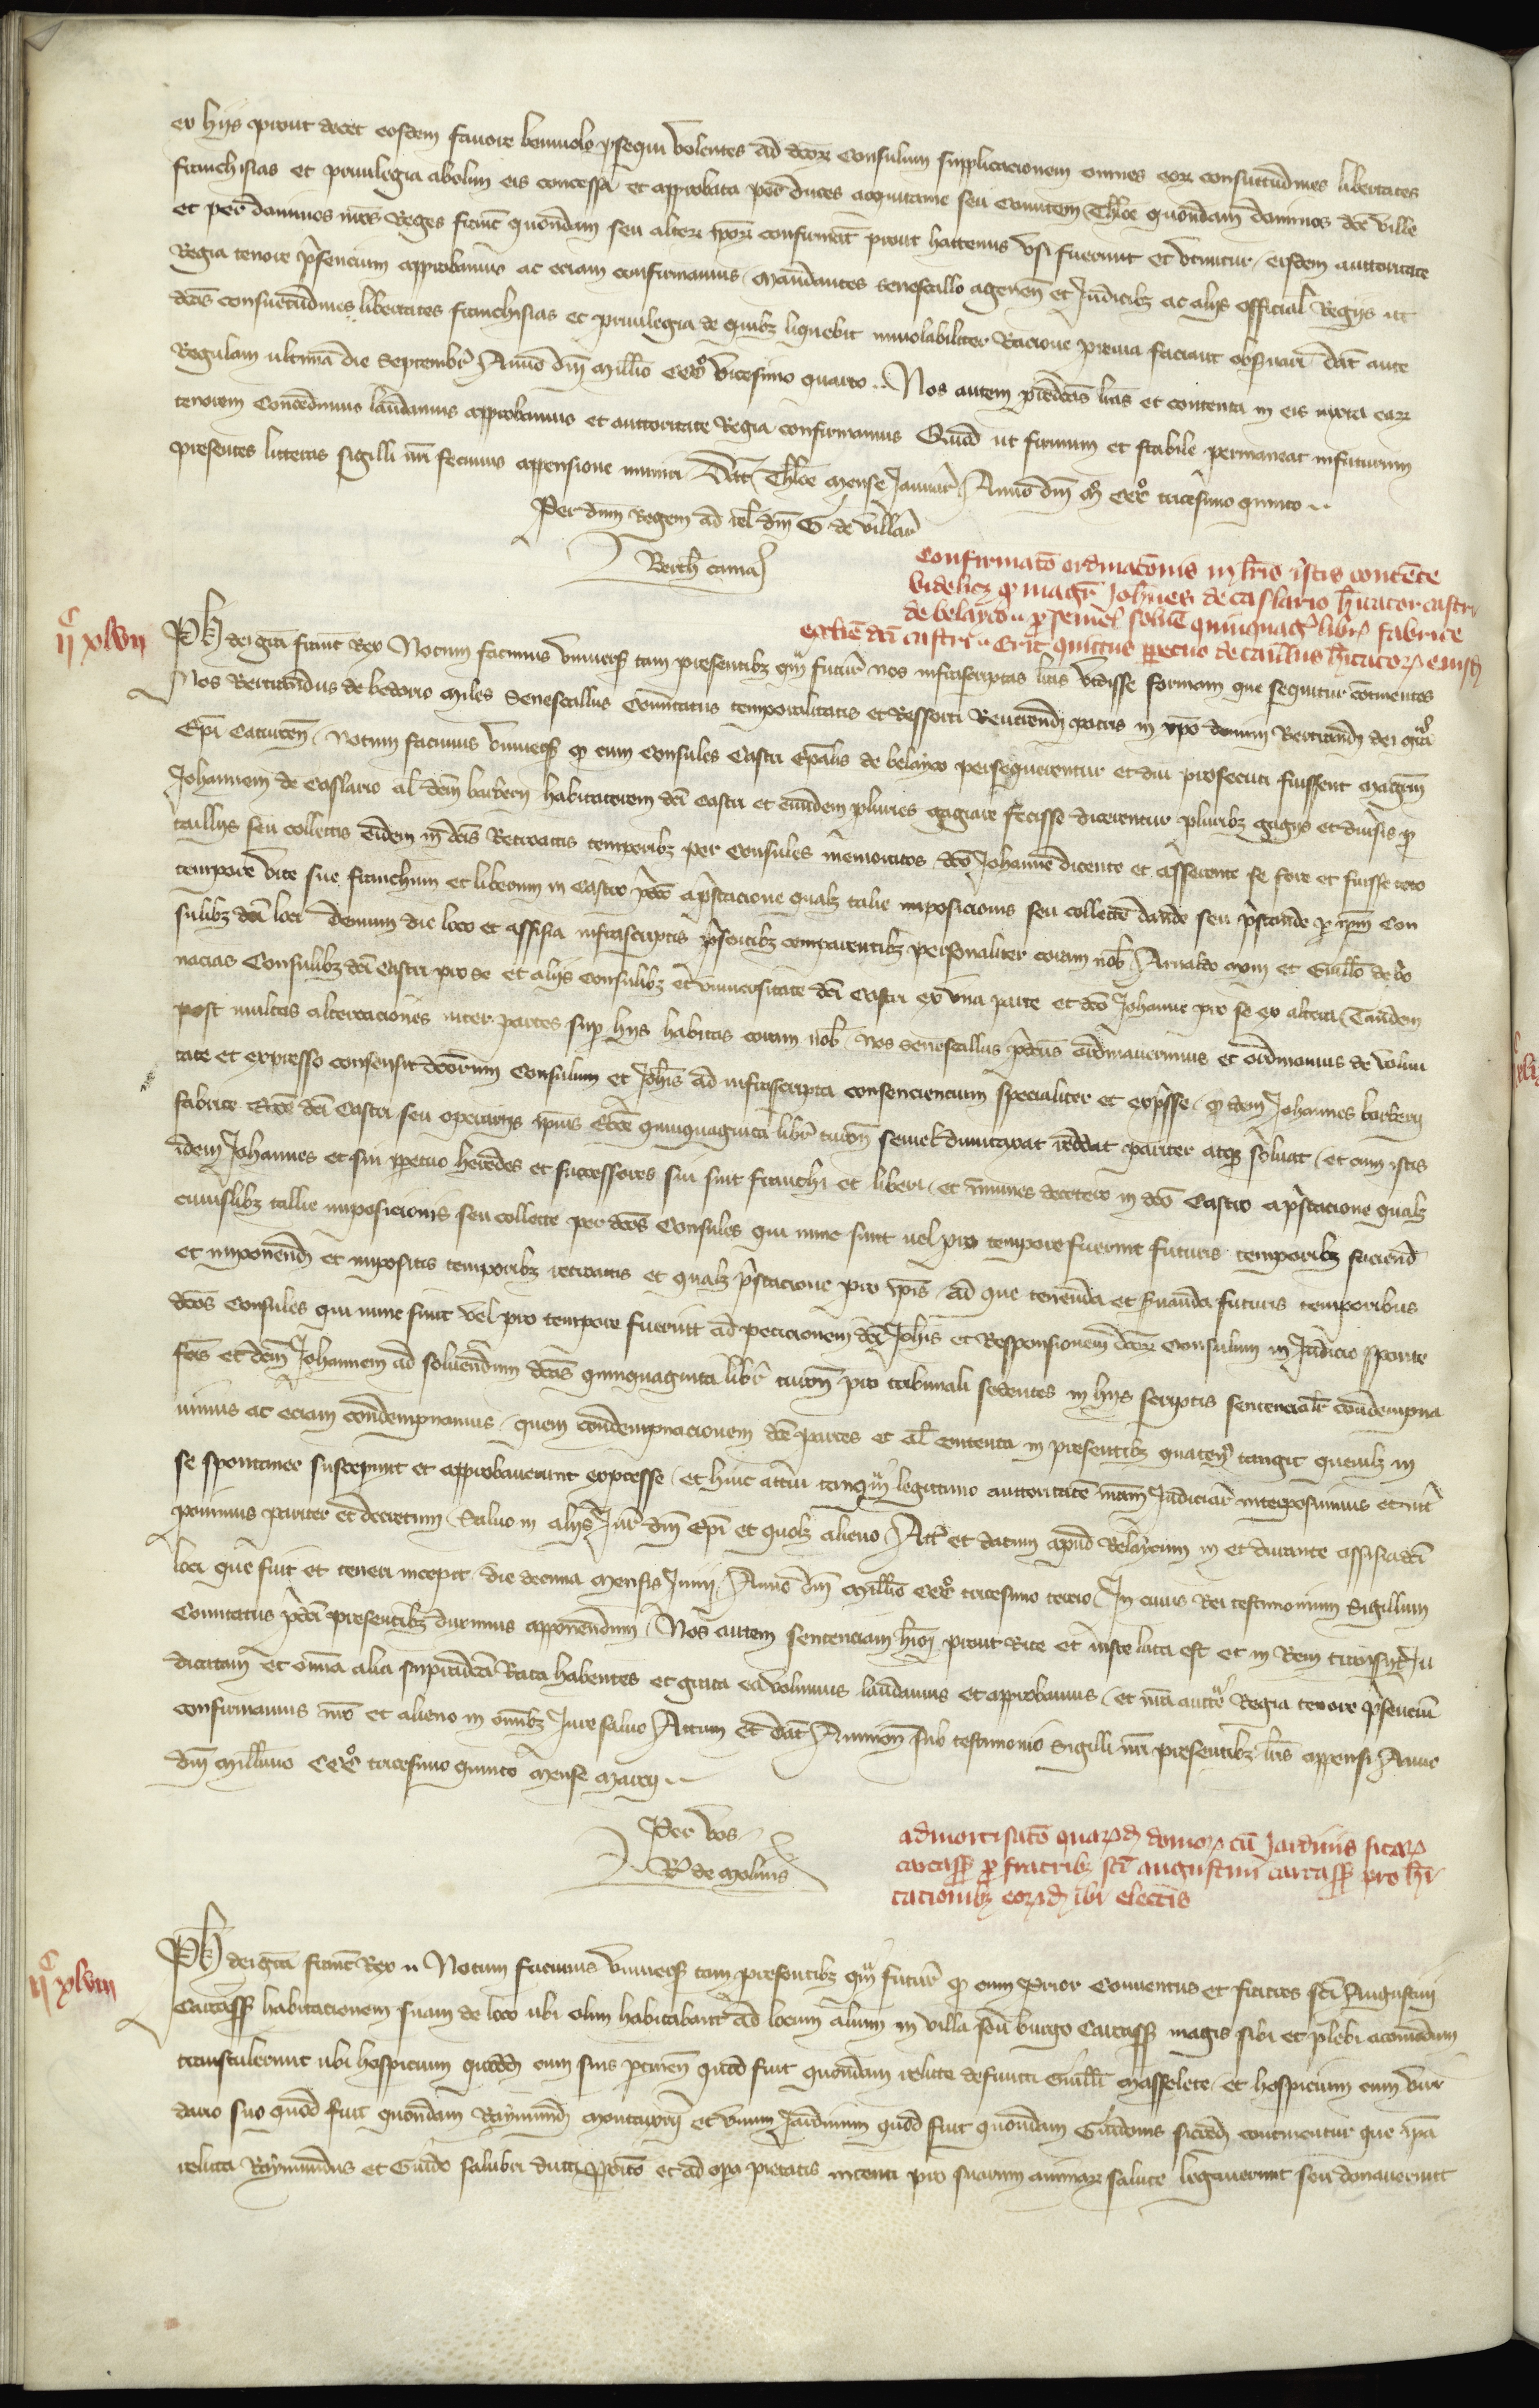 ex hiis prout decet eosdem favore benivolo prosequi volentes ad dictor consulum supplicacionem omnes eor consuetudines libertates
franchisias et privilegia ab olim eis concessa et approbata per duces acquitanie seu comitem Tholose quondam dominos dicte ville
et per dominos nros Reges franc quondam seu alter ipor confirmat prout hactenus usi fuerunt et utuntur eisdem auctoritate
Regia tenore presencium approbamus ac eciam confirmamus mandantes senescallo agenen et Judicibz ac aliis official Regiis ut
dictas consuetudines libertates franchisias et privilegia de quibz liquebit inviolabiliter Racione previa faciant observari Dat ante
Regulam ultima die Septembr Anno dm millio CCCo vicesimo quarto .. Nos autem predictas lras et contenta in eis iuxta ear
tenorem concedimus laudamus approbamus et auctoritate Regia confirmamus Quod ut firmum et stabile permaneat infuturum
presentes litteras sigilli nri fecimus appensione muniri Dat Tholose mense Januar Anno dm Mo CCCo tricesimo quinto ..
Per dnm Regem ad rel dm G de Villar
Berth
Confirmato ordinaconis in lris istis contente
videlicz q magr Johannes de caslario hitator castri
de belayco p semel solue quinquagta libr fabrice
ecclie dci castri erit quittus ppetuo de taillus hitator eiusd
IIc xlvii
Ph dei gra franc Rex Notum facimus universis tam presentibz qm futur nos infrascriptas lras vidisse formam que sequitur continentes
Nos Bertrandus de miles Senescallus Comitatus temporalitatis et Ressorti Reverendi patris in xpo domini Bertrandi dei gra
Epi Caturcen Notum facimus universis q cum consules Castri Epalis de belayco persequerentur et diu prosecuti fuissent magrm
Johannem de Caslario al dcm barbery habitatorem dci castri et eundem pluries gagiare fecisse dicerentur pluribz gagiis et diversis p
taillys seu collectis eidem in dcis Retroactis temporibz per Consules memoratos dco Johanne dicente et asserente se fore et fuisse toto
tempore vite sue franchum et liberum in castro pdco a prestacione qualz talie imposicionis seu collecte dande seu prestande p ipm Con
sulibz dci loci demum die loco et assisia infrascriptis presentibz comparentibz personaliter coram nob Arnaldo et Guillo de bo
nacias Consulibz dci castri pro se et aliis consulibz et universitate dci castri ex una parte et dco Johanne pro se ex altera Tandem
post multas altercaciones inter partes sup hiis habitas coram nob Nos senescallus pdcus ordinavimus et ordinamus de volun
tate et expresso consensu dcorum Consulum et Johis ad infrascripta consenciencium specialiter et expsse q dcus Johannes barbery
fabrice Ecce dci castri seu operariis ipius Ecce quinquaginta libr turon semel dumtaxat reddat pariter atqz solvat et cum istis
idem Johannes et sui ppetuo heredes et successores sui sint franchi et liberi et immunes decetero in dco Castro a pstacione qualz
cuiuslibz tallie imposicionis seu collecte per dcos Consules qui nunc sunt vel pro tempore fuerint futuris temporibz faciend
et imponend et impositis temporibz retroactis et qualz pstacione pro ipis ad que tenenda et servanda futuris temporibus
dcos Consules qui nunc sunt vel pro tempore fuerint ad peticionem dci Johis et Responsionem dcor Consulum in Judicio sponte
fcas et dcm Johannem ad solvendum dcas quinquaginta libr turon pro tribunali sedentes in hiis scriptis sentencialr condempna
vimus ac eciam condempnamus quem condempnacionem dce partes et al contenta in presentibz quaten tangit quemlibz in
se spontanee susceperunt et approbaverunt expresse et huic actui tanqm legittimo auctoritatem nram Judiciar interposuimus et int
ponimus pariter et decretum Salvo in aliis Jur dm Epi et quolz alieno Act et datum apud Belaycum in et durante assisia dci
loci que fuit et teneri incepit die decima mensis Junii Anno dm millio CCCo tricesimo tercio In cuius Rei testimonium Sigillum
Comitatus pdci presentibz duximus apponendum Nos autem sentenciam huiusmodi prout Rite et iuste lata est et in Rem transsiit Ju
dicatam et omia alia supradca Rata habentes et grata ea volumus laudamus et approbamus et nra aucte Regia tenore presencium
confirmamus nro et alieno in omibz Jure salvo Actum et dat Avinion sub testimonio Sigilli nri presentibz lris appensi Anno
dm millimo CCCo tricesimo quinto mense marcii ..
Per vos
R de molinis
admortisato quarumd domor cu Jardinis sitar
carcass p fratribz sci augustini carcass pro hi
tacionibz eorumd ibi electis
IIc xlviii
Ph dei gra franc Rex Notum facimus universis tam presentibz qm futur q cum Prior Conventus et fratres sci Augustini
Carcass habitacionem suam de loco ubi olim habitabant ad locum alium in villa seu burgo Carcass magis sibi et plebi acomodum
transtulerunt ubi hospicium quoddam cum suis ptinen quod fuit quondam relicte defuncti Guilli Masselete et hospicium cum vir
dario suo quod fuit quondam Raymundi et unum Jardinum quod fuit quondam Guidonis continentur que ipa
relicta Raymundus et Guido salubri ducti pposito et ad opa pietatis intenti pro suarum animar salute legaverunt seu donaverunt